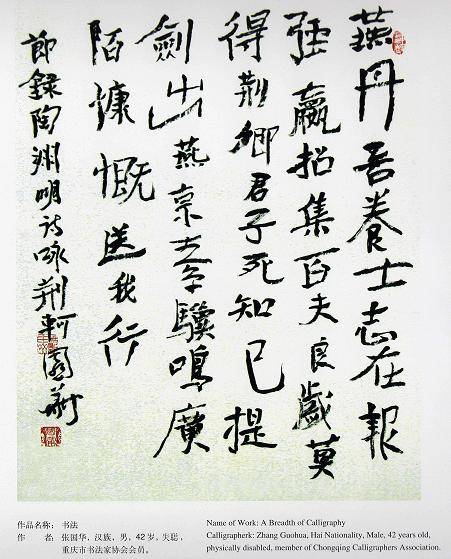 燕丹善養士志在報
强嬴招集百夫良歲莫
得荆卿君子死知己提
劍出燕京素驥鳴廣
陌慷慨送我行
節録陶渊明诗咏荆軻國華
作品名称: 书法
作 者: 张国华, 汉族, 男, 42岁, 失聪,
重庆市书法家协会会员。
Name of Work: A Breadth of Calligraphy
Calligrapherk: Zhang Guohua, Hai Nationality, Male, 42 years old,
physically disabled, member of Chongqing Calligraphers Association.